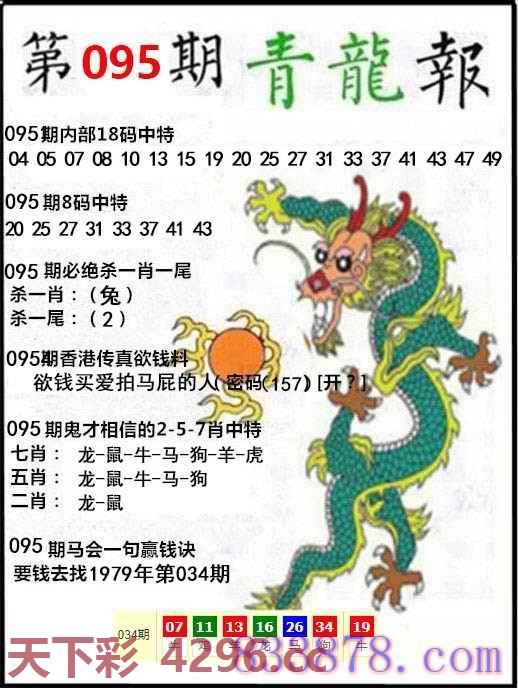 第095期青龍報
095期内部18码中特
04 05 07 08 10 13 15 19 20 25 27 31 33 37 41 43 47 49
095期8码中特
20 25 27 31 33 37 41 43
095期必绝杀一肖一尾
杀一肖：(兔)
杀一尾：(2)
095期香港传真欲钱料
欲钱买爱拍马屁的人(密码(157)[开?]
095期鬼才相信的2-5-7肖中特
七肖：龙-鼠-牛-马-狗-羊-虎
五肖：龙-鼠-牛-马-狗
二肖：龙-鼠
095期马会一句赢钱诀
要钱去找1979年第034期
034期 07 11 13 16 26 34 19
龙 马 狗
天下彩 4296.cc
838878.com